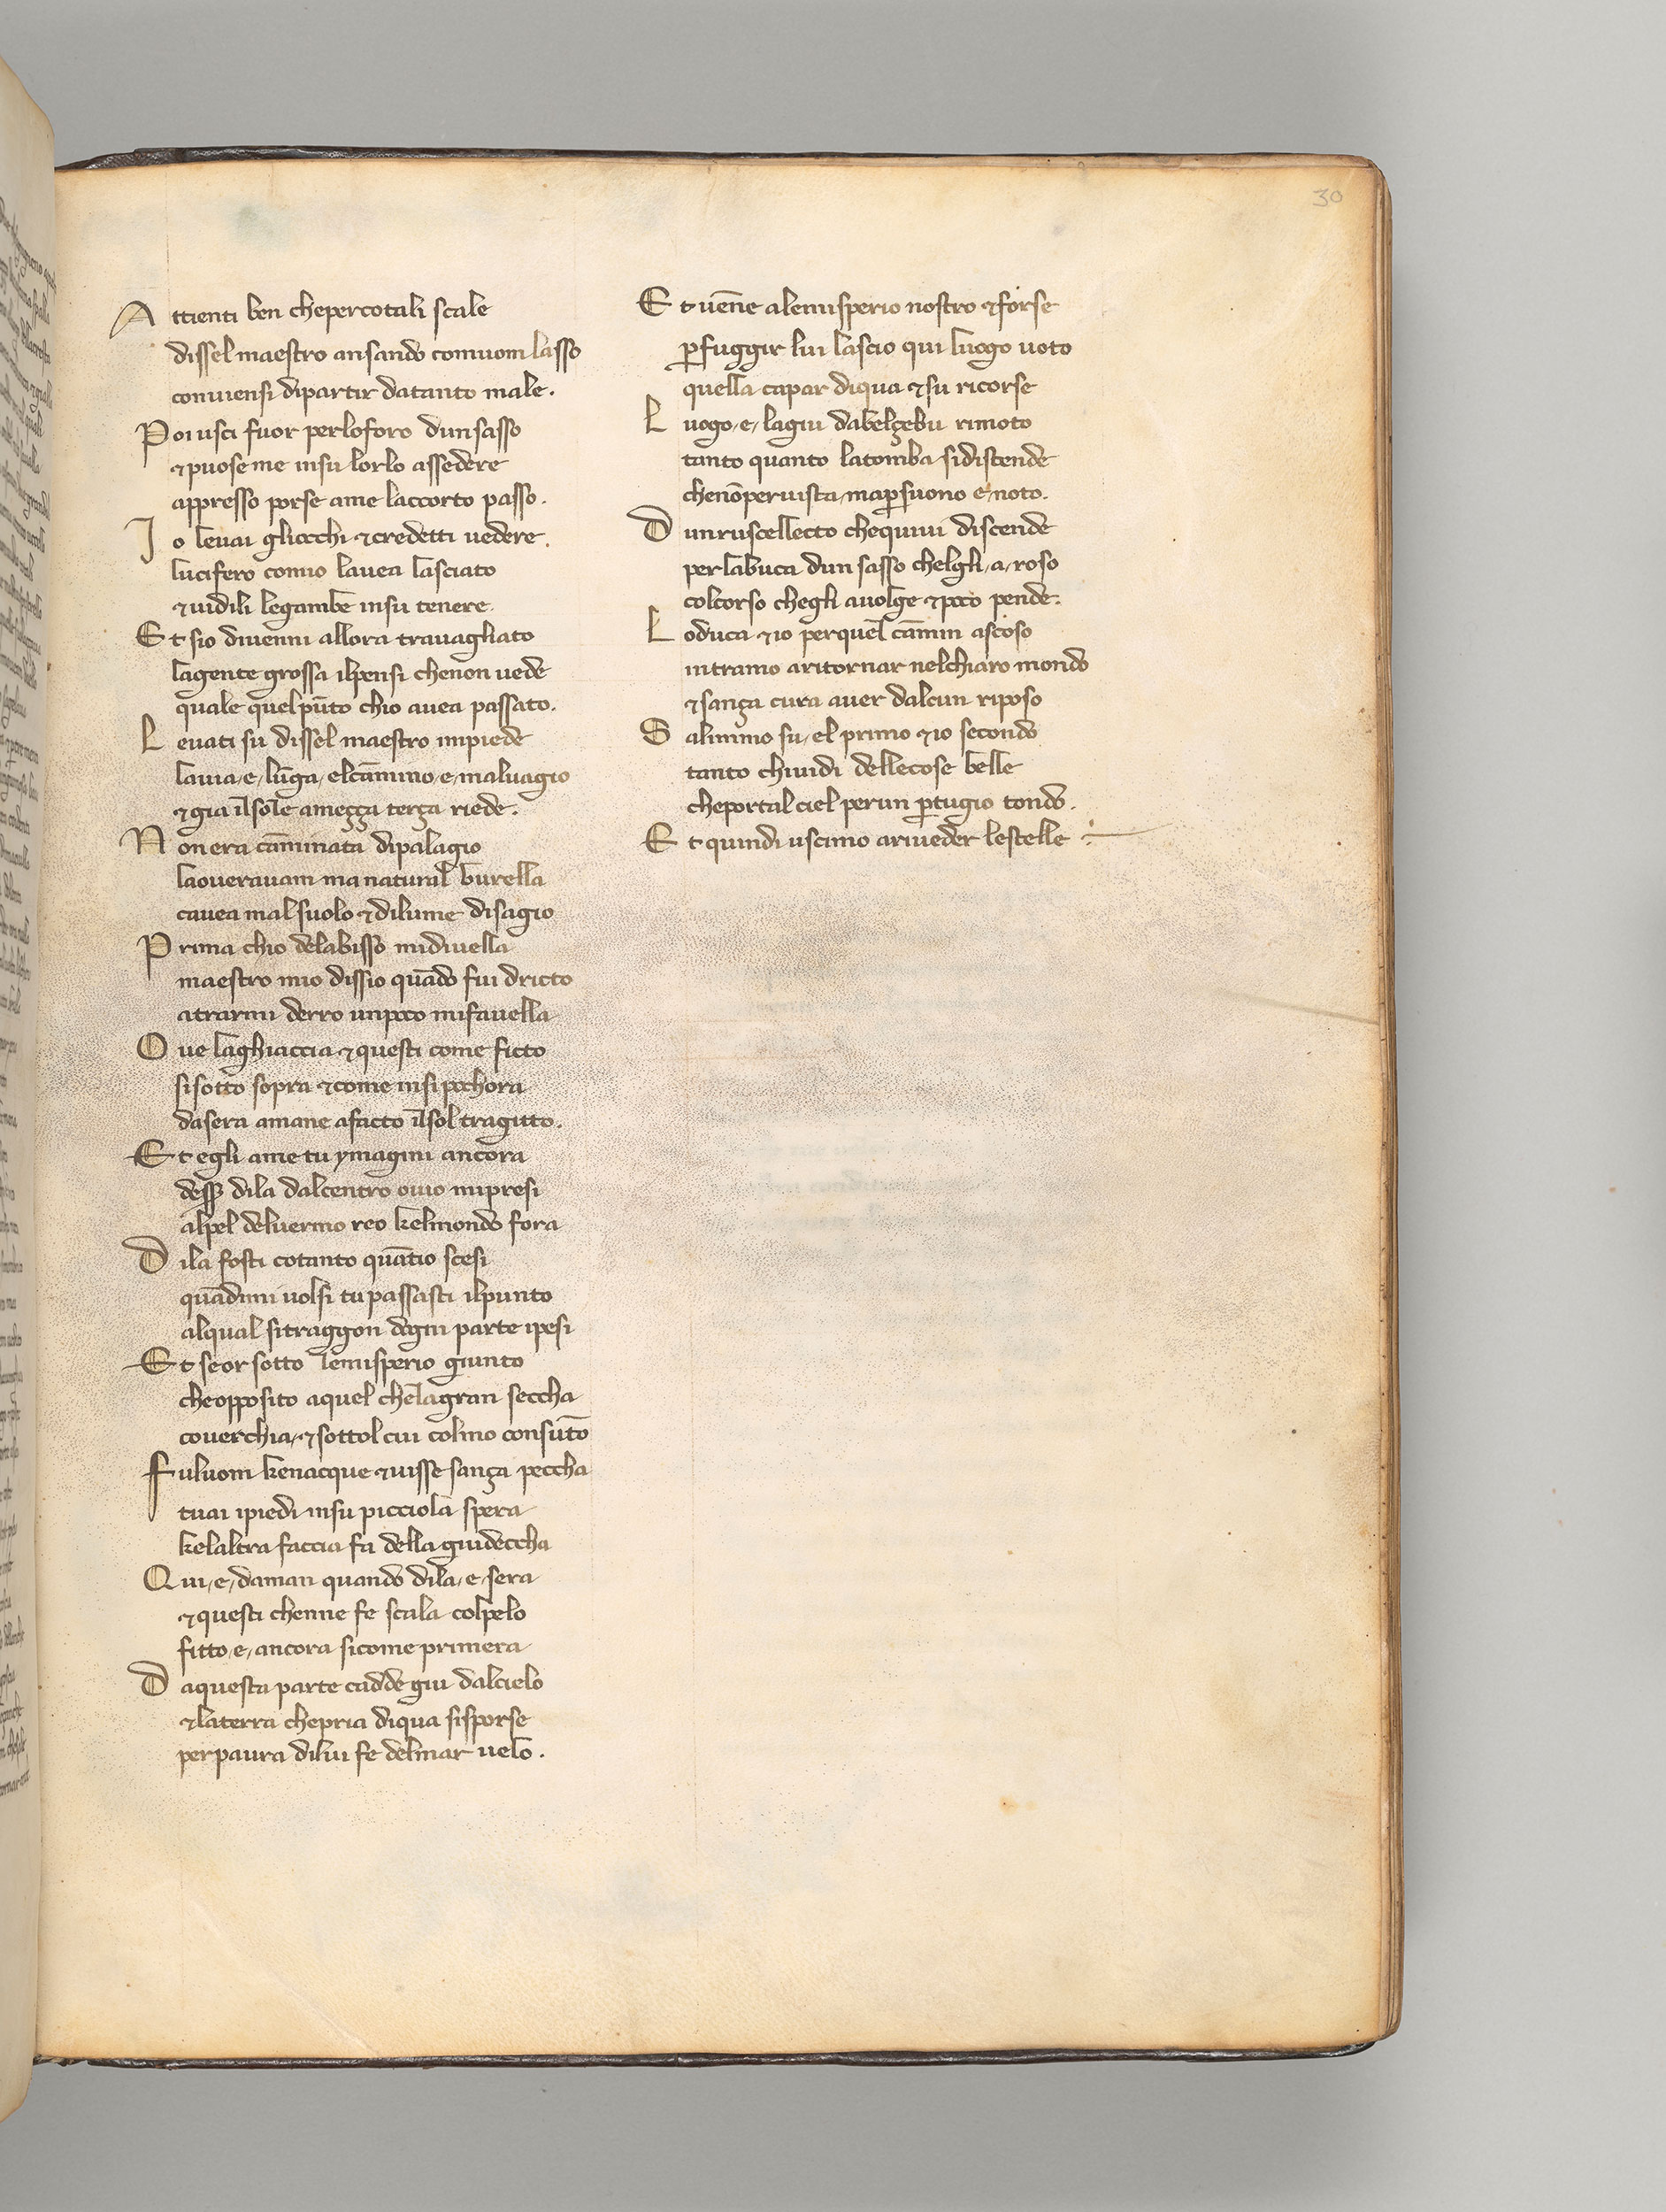 30
Attienti ben chepercotali scale
dissel maestro ansando comuom lasso
conuiensi dipartir datanto male.
Poi usci fuor perloforo dunsasso
⁊puose me insu lorlo assedere
appresso porse ame laccorto passo.
Io leuai gliocchi ⁊credetti uedere.
lucifero comio lauea lasciato
⁊uidili legambe insu tenere.
Et sio diuenni allora trauagliato
lagente grossa ilpensi chenon uede
quale quelpūto chio auea passato.
Leuati su dissel maestro inpiede
lauia/e/lūga/elcāmino/e/maluagio
⁊gia ilsole ameçça terça riede.
Nonera cāminata dipalagio
laouerauam ma natural burella
cauea mal suolo ⁊dilume disagio
Prima chio delabisso midiuella
maestro mio dissio quādo fui dricto
atrarmi derro unpoco mifauella
Oue laghiaccia ⁊questi come ficto
sisotto sopra ⁊come insi pochora
dasera amane afacto ilsol tragitto.
Et egli ame tu ymagini ancora
desß dila dalcentro ouio mipresi
alpel deluermo reo kelmondo fora
Dila fosti cotanto quātio scesi
quādimi uolsi tu passasti ilpunto
alqual sitraggon dogni parte ipesi
Et seor sotto lemisperio giunto
cheopposito aquel chelagran seccha
couerchia/⁊sottol cui colmo consūto
Fuluom kenacque ⁊uisse sança peccha
tuai ipiedi insu picciola spera
kelaltra faccia fa della giudeccha
Qui/e/daman quando dila/e/sera
⁊questi chenne fe scala colpelo
fitto/e/ancora sicome primera
Daquesta parte cadde giu dalcielo
⁊laterra chepria diqua sisporse
perpaura dilui fe delmar uelo.
Et uēne alemisperio nostro ⁊forse
ꝑfuggir lui lascio qui luogo uoto
quella capar diqua ⁊su ricorse
Luogo/e/lagiu dabelçebu rimoto
tanto quanto latomba sidistende
chenōperuista/maꝑsuono e/noto.
Dunruscellecto chequiui discende
perlabuca dun sasso chelgli/a/roso
colcorso chegli auolge ⁊poco pende.
Loduca ⁊io perquel cāmin ascoso
intramo aritornar nelchiaro mondo
⁊sança cura auer dalcun riposo
Salimmo su/el primo ⁊io secondo
tanto chiuidi dellecose belle
cheportal ciel perun ꝑtugio tondo.
Et quindi uscimo ariueder lestelle